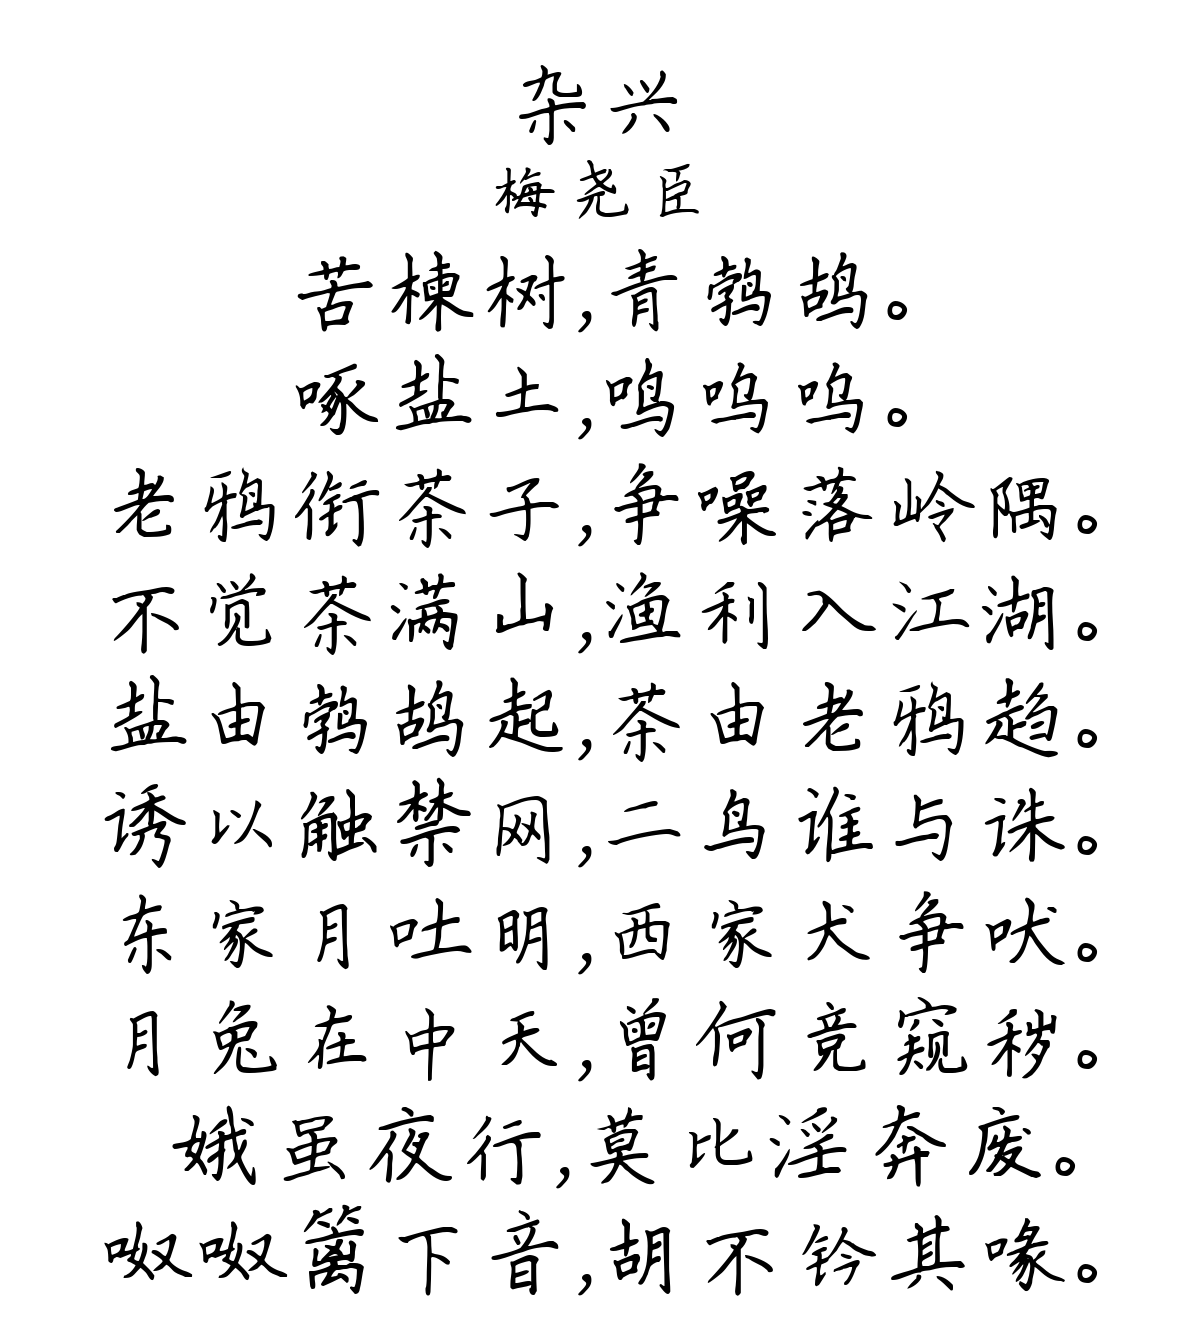 杂兴
梅尧臣
苦楝树,青鹁鸪。
啄盐土,鸣呜呜。
老鸦衔茶子,争噪落岭隅。
不觉茶满山,渔利入江湖。
盐由鹁鸪起,茶由老鸦趋。
诱以触禁网,二鸟谁与诛。
东家月吐明,西家犬争吠。
月兔在中天,曾何竞窥秽。
娥虽夜行,莫比淫奔废。
呶呶篱下音,胡不钤其喙。